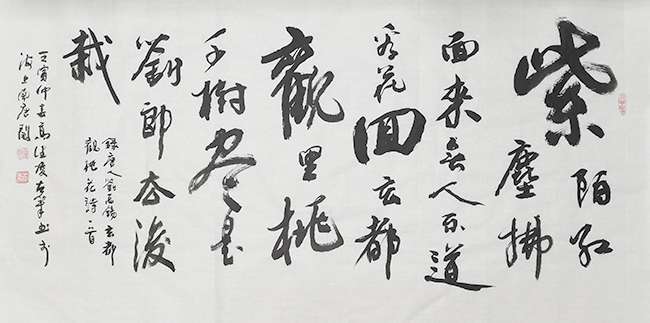 紫陌紅
塵拂
面來無人不道
看花回玄都
觀里桃
千樹盡是
劉郎去後
栽
錄唐人劉禹錫玄都
觀桃花詩一首
壬寅仲
海上